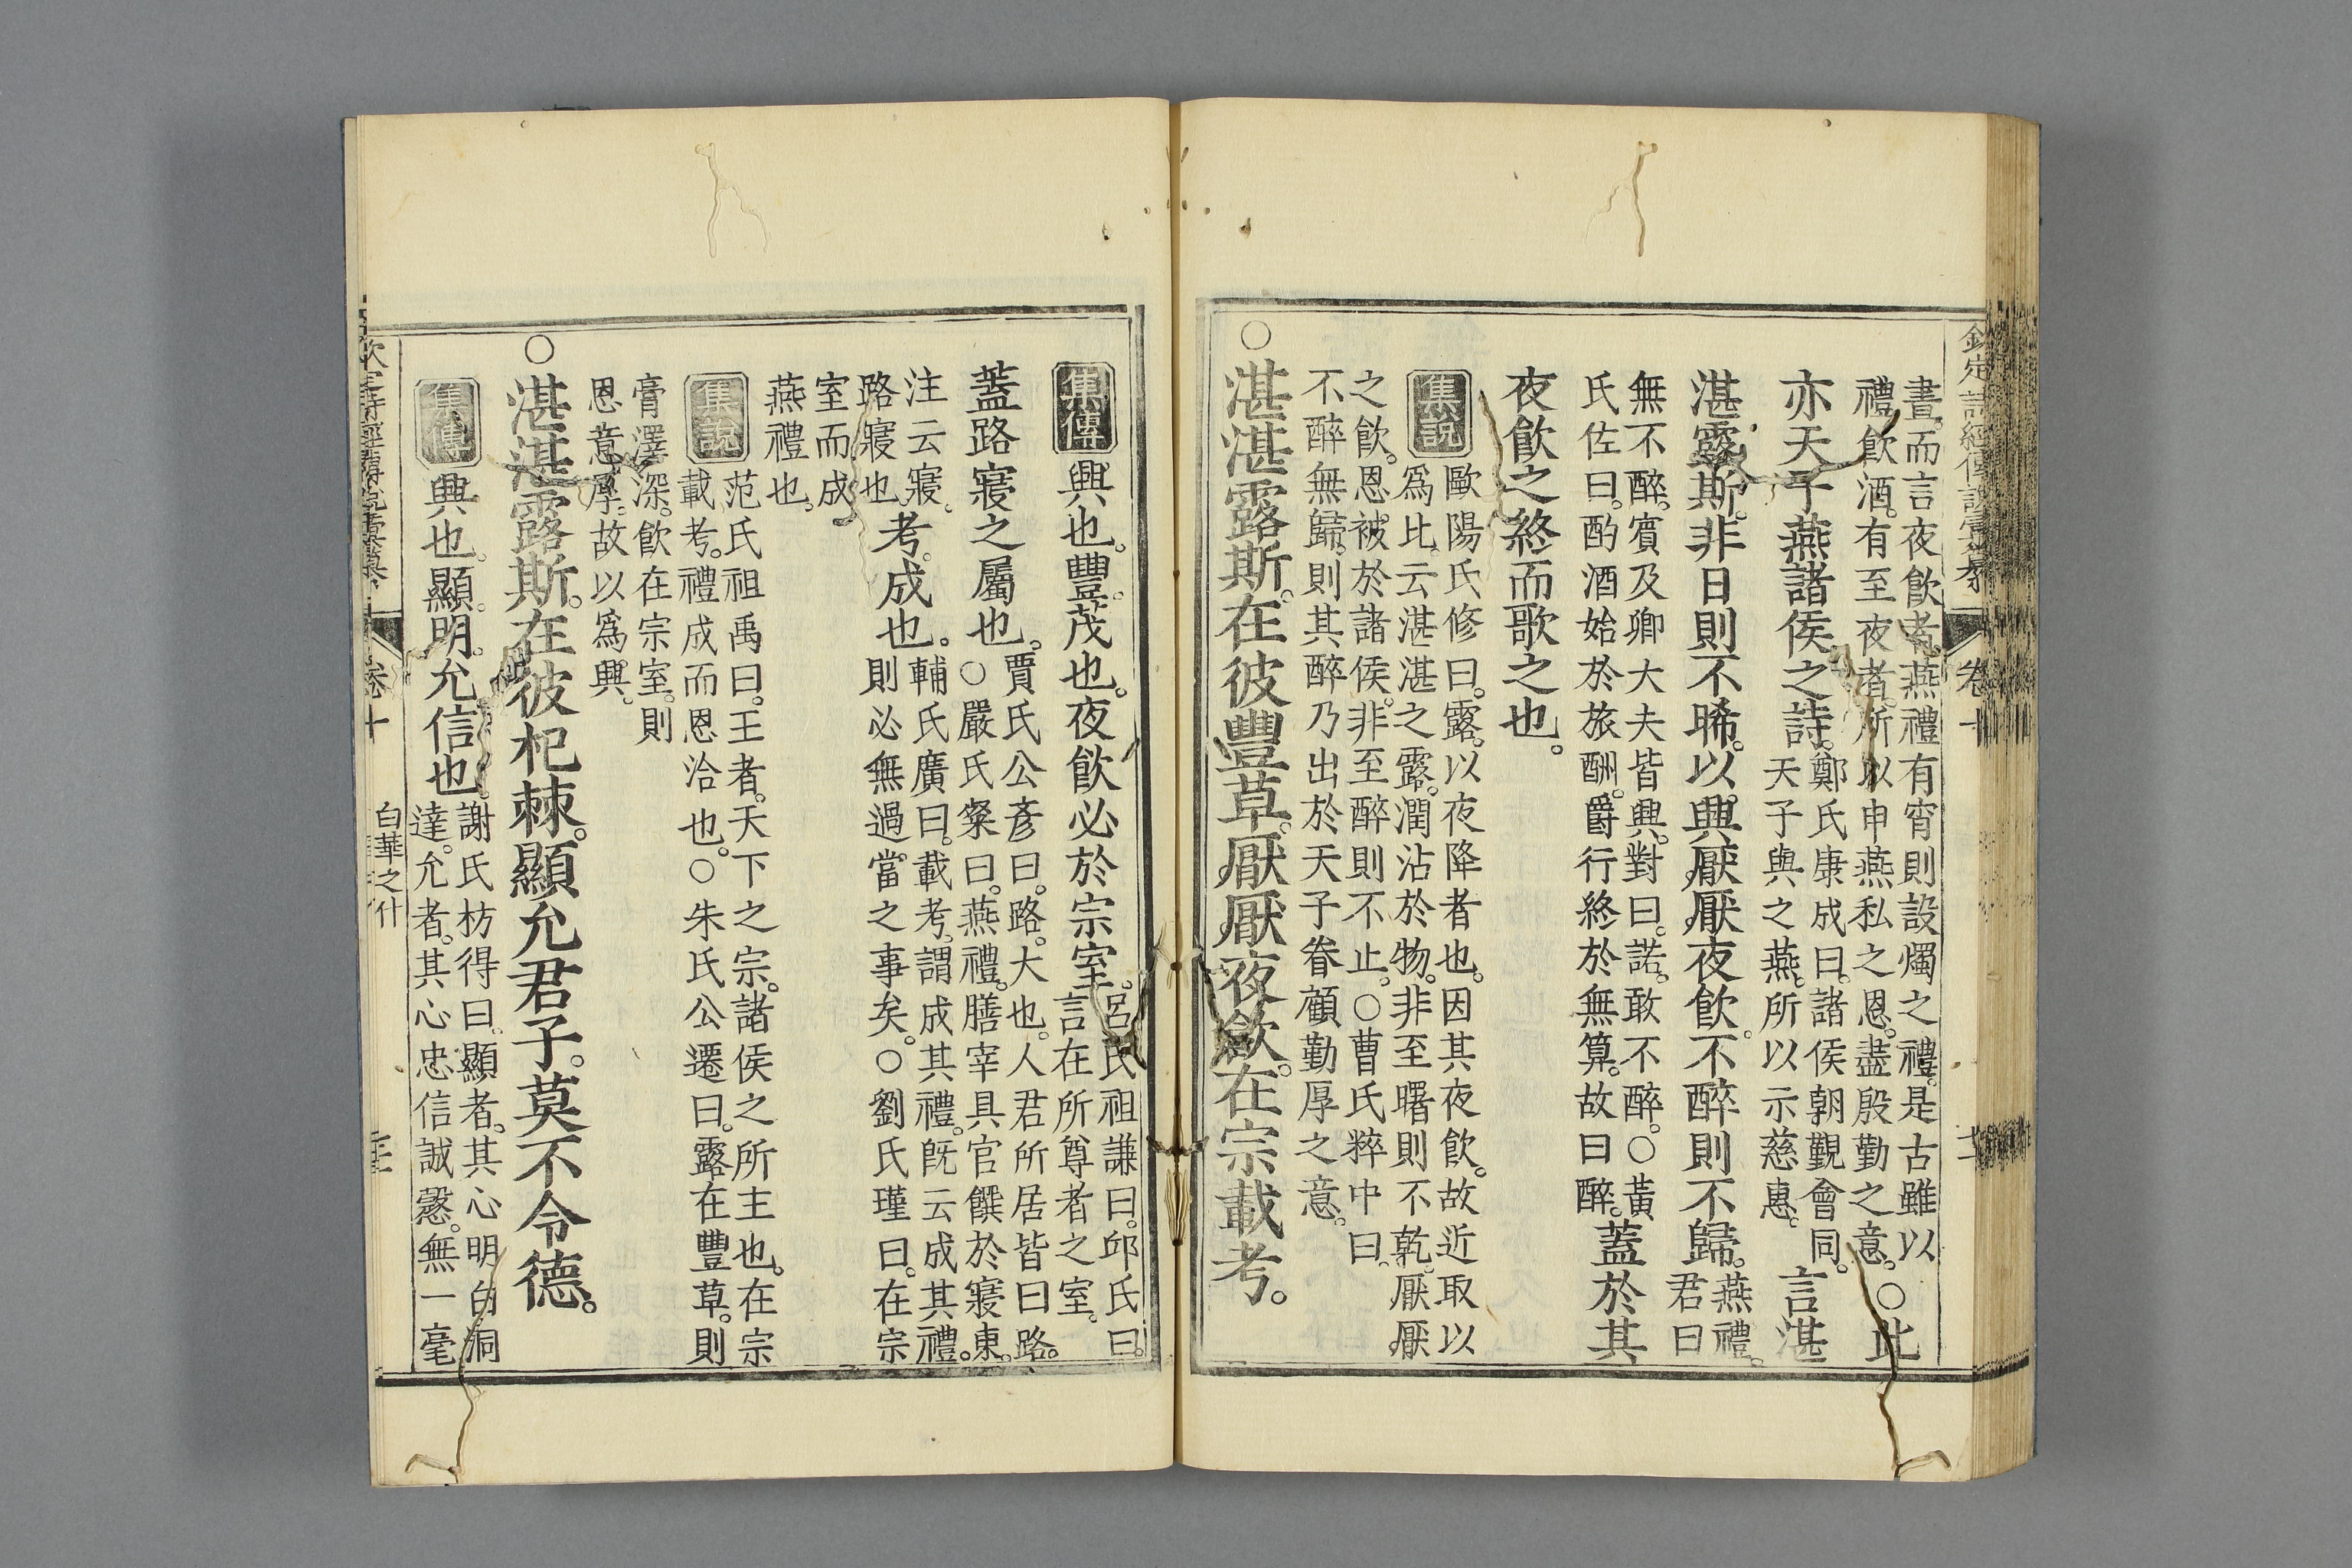 欽定詩經傳說彙纂 卷十
晝。而言夜飲者。燕禮有宵則設燭之禮。是古雖以
禮飲酒。有至夜者。所以申燕私之恩。盡殷勤之意。○此
亦天子燕諸侯之詩。鄭氏康成曰。諸侯朝覲會同。
天子與之燕。所以示慈惠。言湛
湛露斯。非日則不晞。以興厭厭夜飲。不醉則不歸。燕禮。
君曰
無不醉。賓及卿大夫皆興。對曰。諾。敢不醉。○黃
氏佐曰。酌酒始於旅酬。爵行終於無算。故曰醉。蓋於其
夜飲之終而歌之也。
集說 歐陽氏修曰。露。以夜降者也。因其夜飲。故近取以
爲比。云湛湛之露。潤沾於物。非至曙則不乾。厭厭
之飲。恩被於諸侯。非至醉則不止。○曹氏粹中曰。
不醉無歸。則其醉乃出於天子眷顧勤厚之意。
○湛湛露斯。在彼豐草。厭厭夜飲。在宗載考。
集傳 興也。豐。茂也。夜飲必於宗室。呂氏祖謙曰。邱氏曰。
言在所尊者之室。
蓋路寢之屬也。賈氏公彥曰。路。大也。人君所居皆曰路。
○嚴氏粲曰。燕禮。膳宰具官饌於寢東。
注云寢。
路寢也。考。成也。輔氏廣曰。載考。謂成其禮。旣云成其禮。
則必無過當之事矣。○劉氏瑾曰。在宗
室而成
燕禮也。
集說 范氏祖禹曰。王者。天下之宗。諸侯之所主也。在宗
載考。禮成而恩洽也。○朱氏公遷曰。露在豐草。則
膏澤深。飲在宗室。則
恩意厚。故以爲興。
○湛湛露斯。在彼杞棘。顯允君子。莫不令德。
集傳 興也。顯。明。允。信也。謝氏枋得曰。顯者。其心明白洞
達。允者。其心忠信誠慤。無一毫
卷十 白華之什